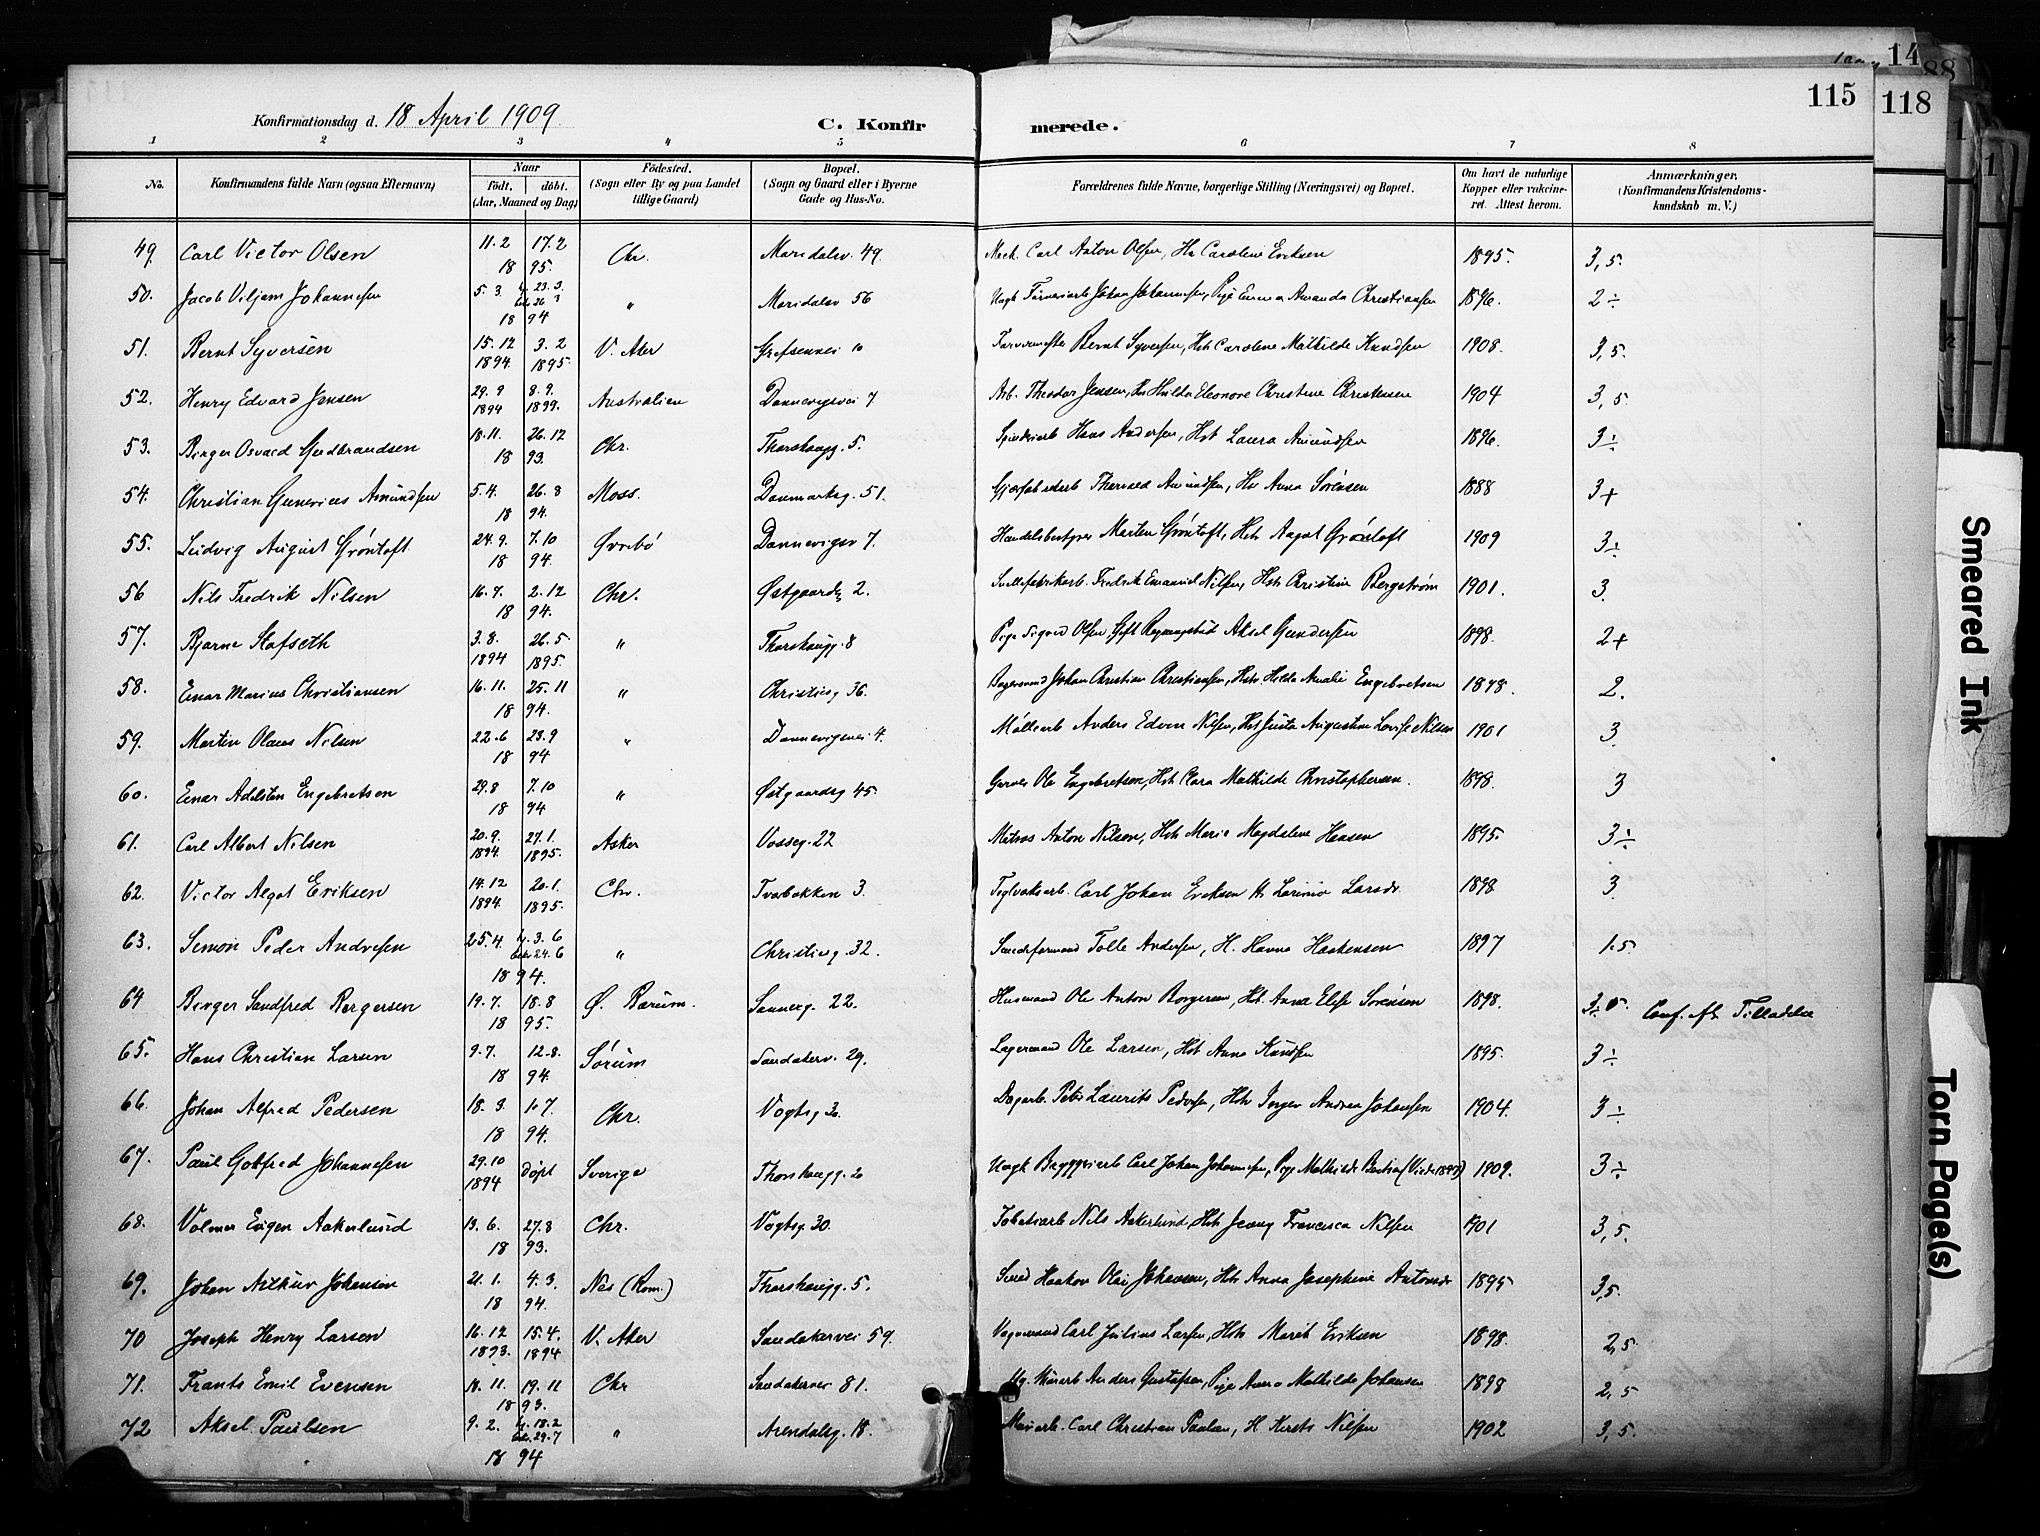 14
88
115
118
Konfirmationsdag d. 18 April 1909
C. Konfir
merede.
1 2 3 4 5 6 7 8
No. Konfirmandens fulde Navn (ogsaa Efternavn) Naar født. døbt. (Aar, Maaned og Dag) Fødested. (Sogn eller By og paa Landet tillige Gaard) Bopæl. (Sogn og Gaard eller i Byerne Gade og Hus-No. Forældrenes fulde Navne, borgerlige Stilling (Næringsvei) og Bopæl. Om havt de naturlige Kopper eller vakcineret. Attest herom. Anmærkninger. (Konfirmandens Kristendomskundskab m. V.)
49. Carl Victor Olsen 11.2 17.2 18 95. Chr. Maridalsv. 49. Mek. Carl Anton Olsen, H. Caroline Eriksen 1895. 3,5.
50. Jacob Viljam Johannesen 5.3 23.3. 18 94 " Maridalsv 56 Johan Johannesen, Pige Emma Amanda Christiansen 1896. 2÷
51. Bernt Syversen 15.12 1894. 3.2 1895. V. Aker Grefsenvei 10 Bernt Syversen, Hst Caroline Mathilde Knudsen 1908. 3,5.
52. Henry Edvard Jensen 29.9 1894 8.9. 1899. Australien Dannevigsvei 7 Arb. Theodor Jensen, Hulda Eleonore Christine Christensen 1904 3,5
53. Birger Osvald Gudbrandsen 18.11. 26.12 18 93. Chr. Thorshaugg. 5. Hans Andersen, Hst Laura Amundsen 1896. 3÷
54. Christian Gunerius Amundsen 5.4. 26.8 18 94. Moss. Danmarksg. 51. Amundsen, Hr Anna Sørensen 1888 3+
55. Ludvig August Grøntoft 24.9. 7.10 18 94. Øvrebø Dannevigsv 7. Handelsbestyrer Morten Grøntoft, Hst Aagot Grøntoft 1909 3÷
56 Nils Fredrik Nilsen 16.7. 2.12 18 94. Chr. Østgaardsg 2. Fredrik Emanuel Nilsen, Hst Christine Bergstrøm 1901. 3.
57. Bjarne Stafseth 3.8. 1894 26.5 1895. " Thorshaugg. 8 Pige Sigrid Olsen, Aksel Gundersen 1898. 2+
58. Einar Marius Christiansen 16.11. 25.11 18 94. " Christiesg 36. Johan Christian Christiansen, Hst Hilda Amalie Engebretsen 1898. 2.
59. Martin Olaus Nilsen 22.6 23.9 18 94 " Dannevigsvei 4. Møllearb Anders Edvin Nilsen, Hst Justa Augustine Lovise Nilsen 1901 3
60. Einar Adelsten Engebretsen 29.8 7.10 18 94 " Østgaardsg 45. Garver Ole Engebretsen, Hst Clara Mathilde Christophersen. 1898. 3
61. Carl Albert Nilsen 20.9. 1894. 27.1. 1895. Asker Vosseg. 22 Matros Anton Nilsen, Hst Marie Magdalene Hansen 1895. 3÷
62. Victor Algot Eriksen 14.12 1894. 20.1. 1895. Chr. Torbakken 3. Teglverksarb. Carl Johan Eriksen H. Larsdr. 1898 3
63. Simon Peder Andresen 25.4. 3.6 24.6 18 94. " Christiesg. 32. Tolle Andersen, H. Hanna Haakensen 1897 1.5
64 Birger Sandfred Bergersen 19.7. 18.8 18 95. Ø. Bærum. Sannerg. 22. Husmand Ole Anton Borgersen, Hst. Anna Elise Sørensen 1898. Conf. eft. Tilladelse
65. Hans Christian Larsen 9.7. 12.8. 18 94. Sørum Sandakerv. 29. Lagermand Ole Larsen, Hst Anna Knudsen 1895. 3÷
66. Johan Alfred Pedersen 18.3. 1.7 18 94. Chr. Vogtsg Dagarb. Peter Laurits Pedersen, Hst Inger Andrea Johansen 1904. 3÷
67. Paul Gotfred Johannesen 29.10 1894 døpt Sverige Thorshaugg. 2 Carl Johan Johannesen, Pige Mathilde 1909. 3÷
68. Volmer Eugen Aakerlund 13.6. 27.8 18 93. Chr. Vogtsg. 30. Nils Aakerlund, Hst Jenny Francisca Nilsen 1901 3,5.
69. Johan Arthur Johansen 21.1. 4.3. 18 94. Nes (Rom.) Thorshaugg. 5. Smed Haakon Olai Johansen, Hst Anna Josephine Antonsdr 1895 3,5.
70 Joseph Henry Larsen 16.12 1893. 15.4. 1894 V. Aker Sandakervei 59. Vognmand Carl Julius Larsen, Hst Marit Eriksen 1898. 2,5
71. Frants Emil Evensen 18.11. 19.11 18 93. Chr Sandakervei 81. Anders Gustafsen, Pige Anna Mathilde Johansen 1898 2,5
72 Aksel Paulsen 9.2. 18.2 29.7 18 94 " Arendalsg. 18. Murarb. Carl Christian Paulsen, H Nilsen 1902 3,5.
Smeared Ink
Torn Page(s)